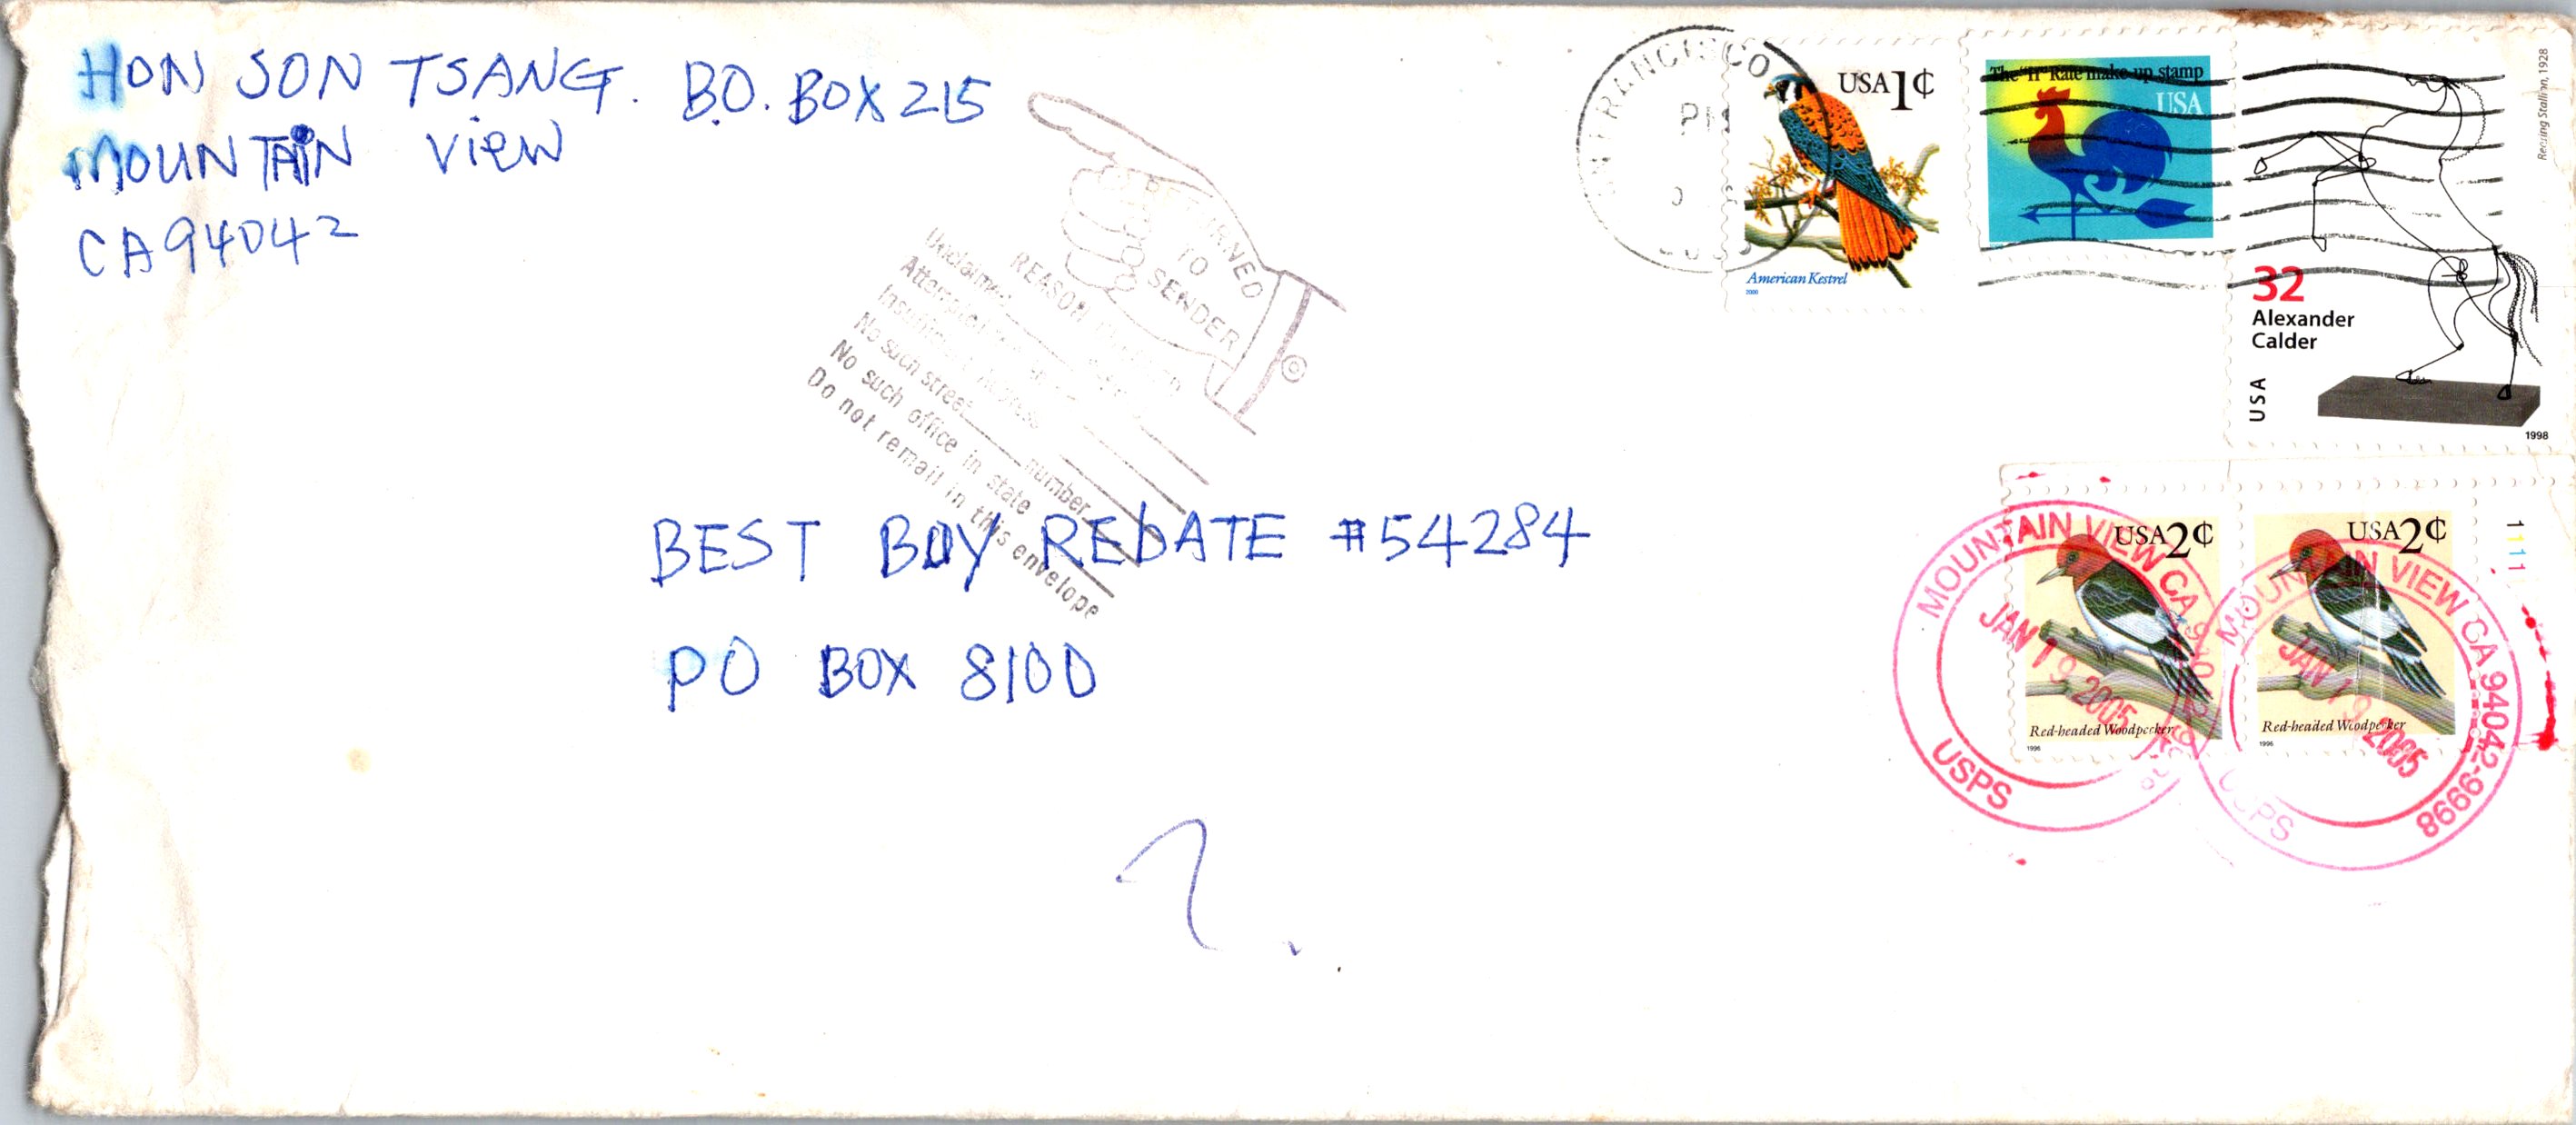 HON SON TSANG. B.O. BOX 215
MOUNTAIN View
CA 94042
RETURNED
TO
SENDER
REASON
Unclaimed
Attempted
Insufficient Address
No such street number
No such office in state
Do not remail in this envelope
SAN FRANCISCO
PM
USA 1¢
American Kestrel
2000
The "H" Rate make-up stamp
USA
Rearing Stallion, 1928
32
Alexander
Calder
USA
1998
BEST BUY REbATE #54284
PO BOX 8100
?
USA 2¢
Red-headed Woodpecker
1996
USA 2¢
Red-headed Woodpecker
1996
1111
MOUNTAIN VIEW CA
JAN 19 2005
USPS
MOUNTAIN VIEW CA 94042-9998
JAN 19 2005
USPS